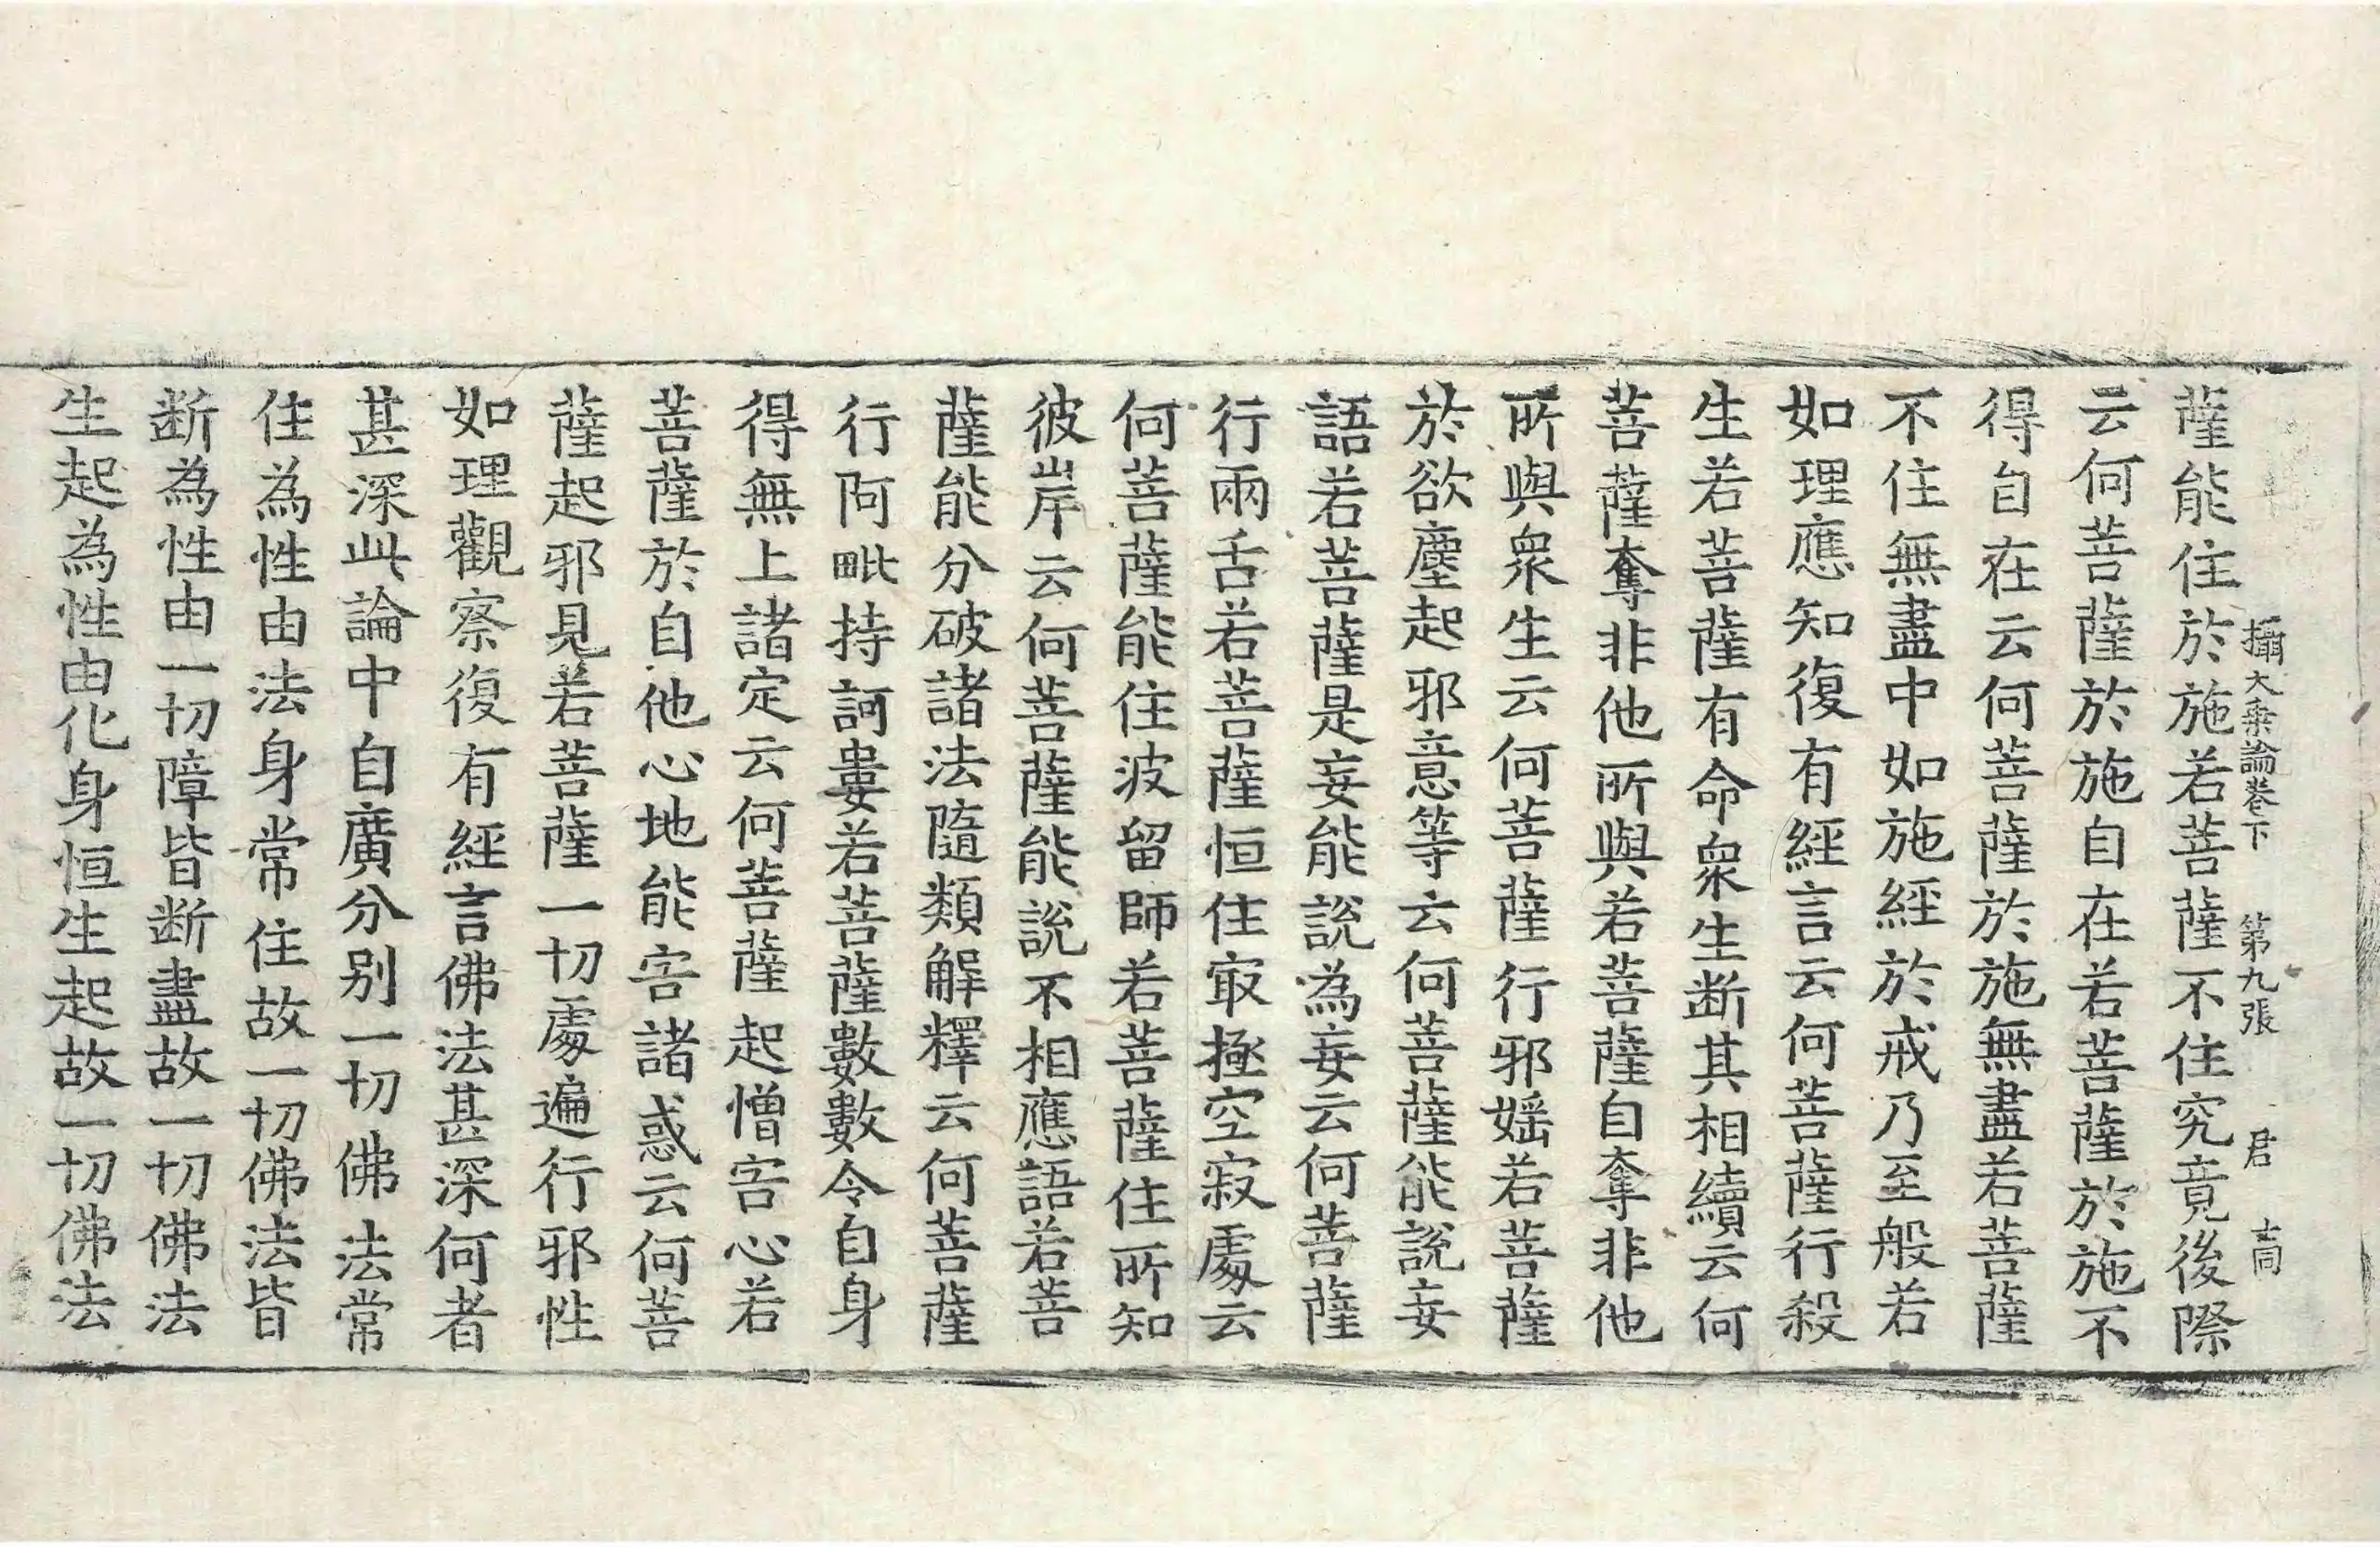 攝大乗論卷下 第九張 君
薩能住於施若菩薩不住究竟後際
云何菩薩於施自在若菩薩於施不
得自在云何菩薩於施無盡若菩薩
不住無盡中如施經於戒乃至般若
如理應知復有經言云何菩薩行殺
生若菩薩有命衆生断其相續云何
菩薩奪非他所與若菩薩自奪非他
所與衆生云何菩薩行邪婬若菩薩
於欲塵起邪意等云何菩薩能說妄
語若菩薩是妄能說為妄云何菩薩
行兩舌若菩薩恒住㝡極空寂處云
何菩薩能住波留師若菩薩住所知
彼岸云何菩薩能說不相應語若菩
薩能分破諸法隨類解釋云何菩薩
行阿毗持訶婁若菩薩數數令自身
得無上諸定云何菩薩起憎害心若
菩薩於自他心地能害諸惑云何菩
薩起邪見若菩薩一切處遍行邪性
如理觀察復有經言佛法甚深何者
甚深此論中自廣分别一切佛法常
住為性由法身常住故一切佛法皆
断為性由一切障皆断盡故一切佛法
生起為性由化身恒生起故一切佛法